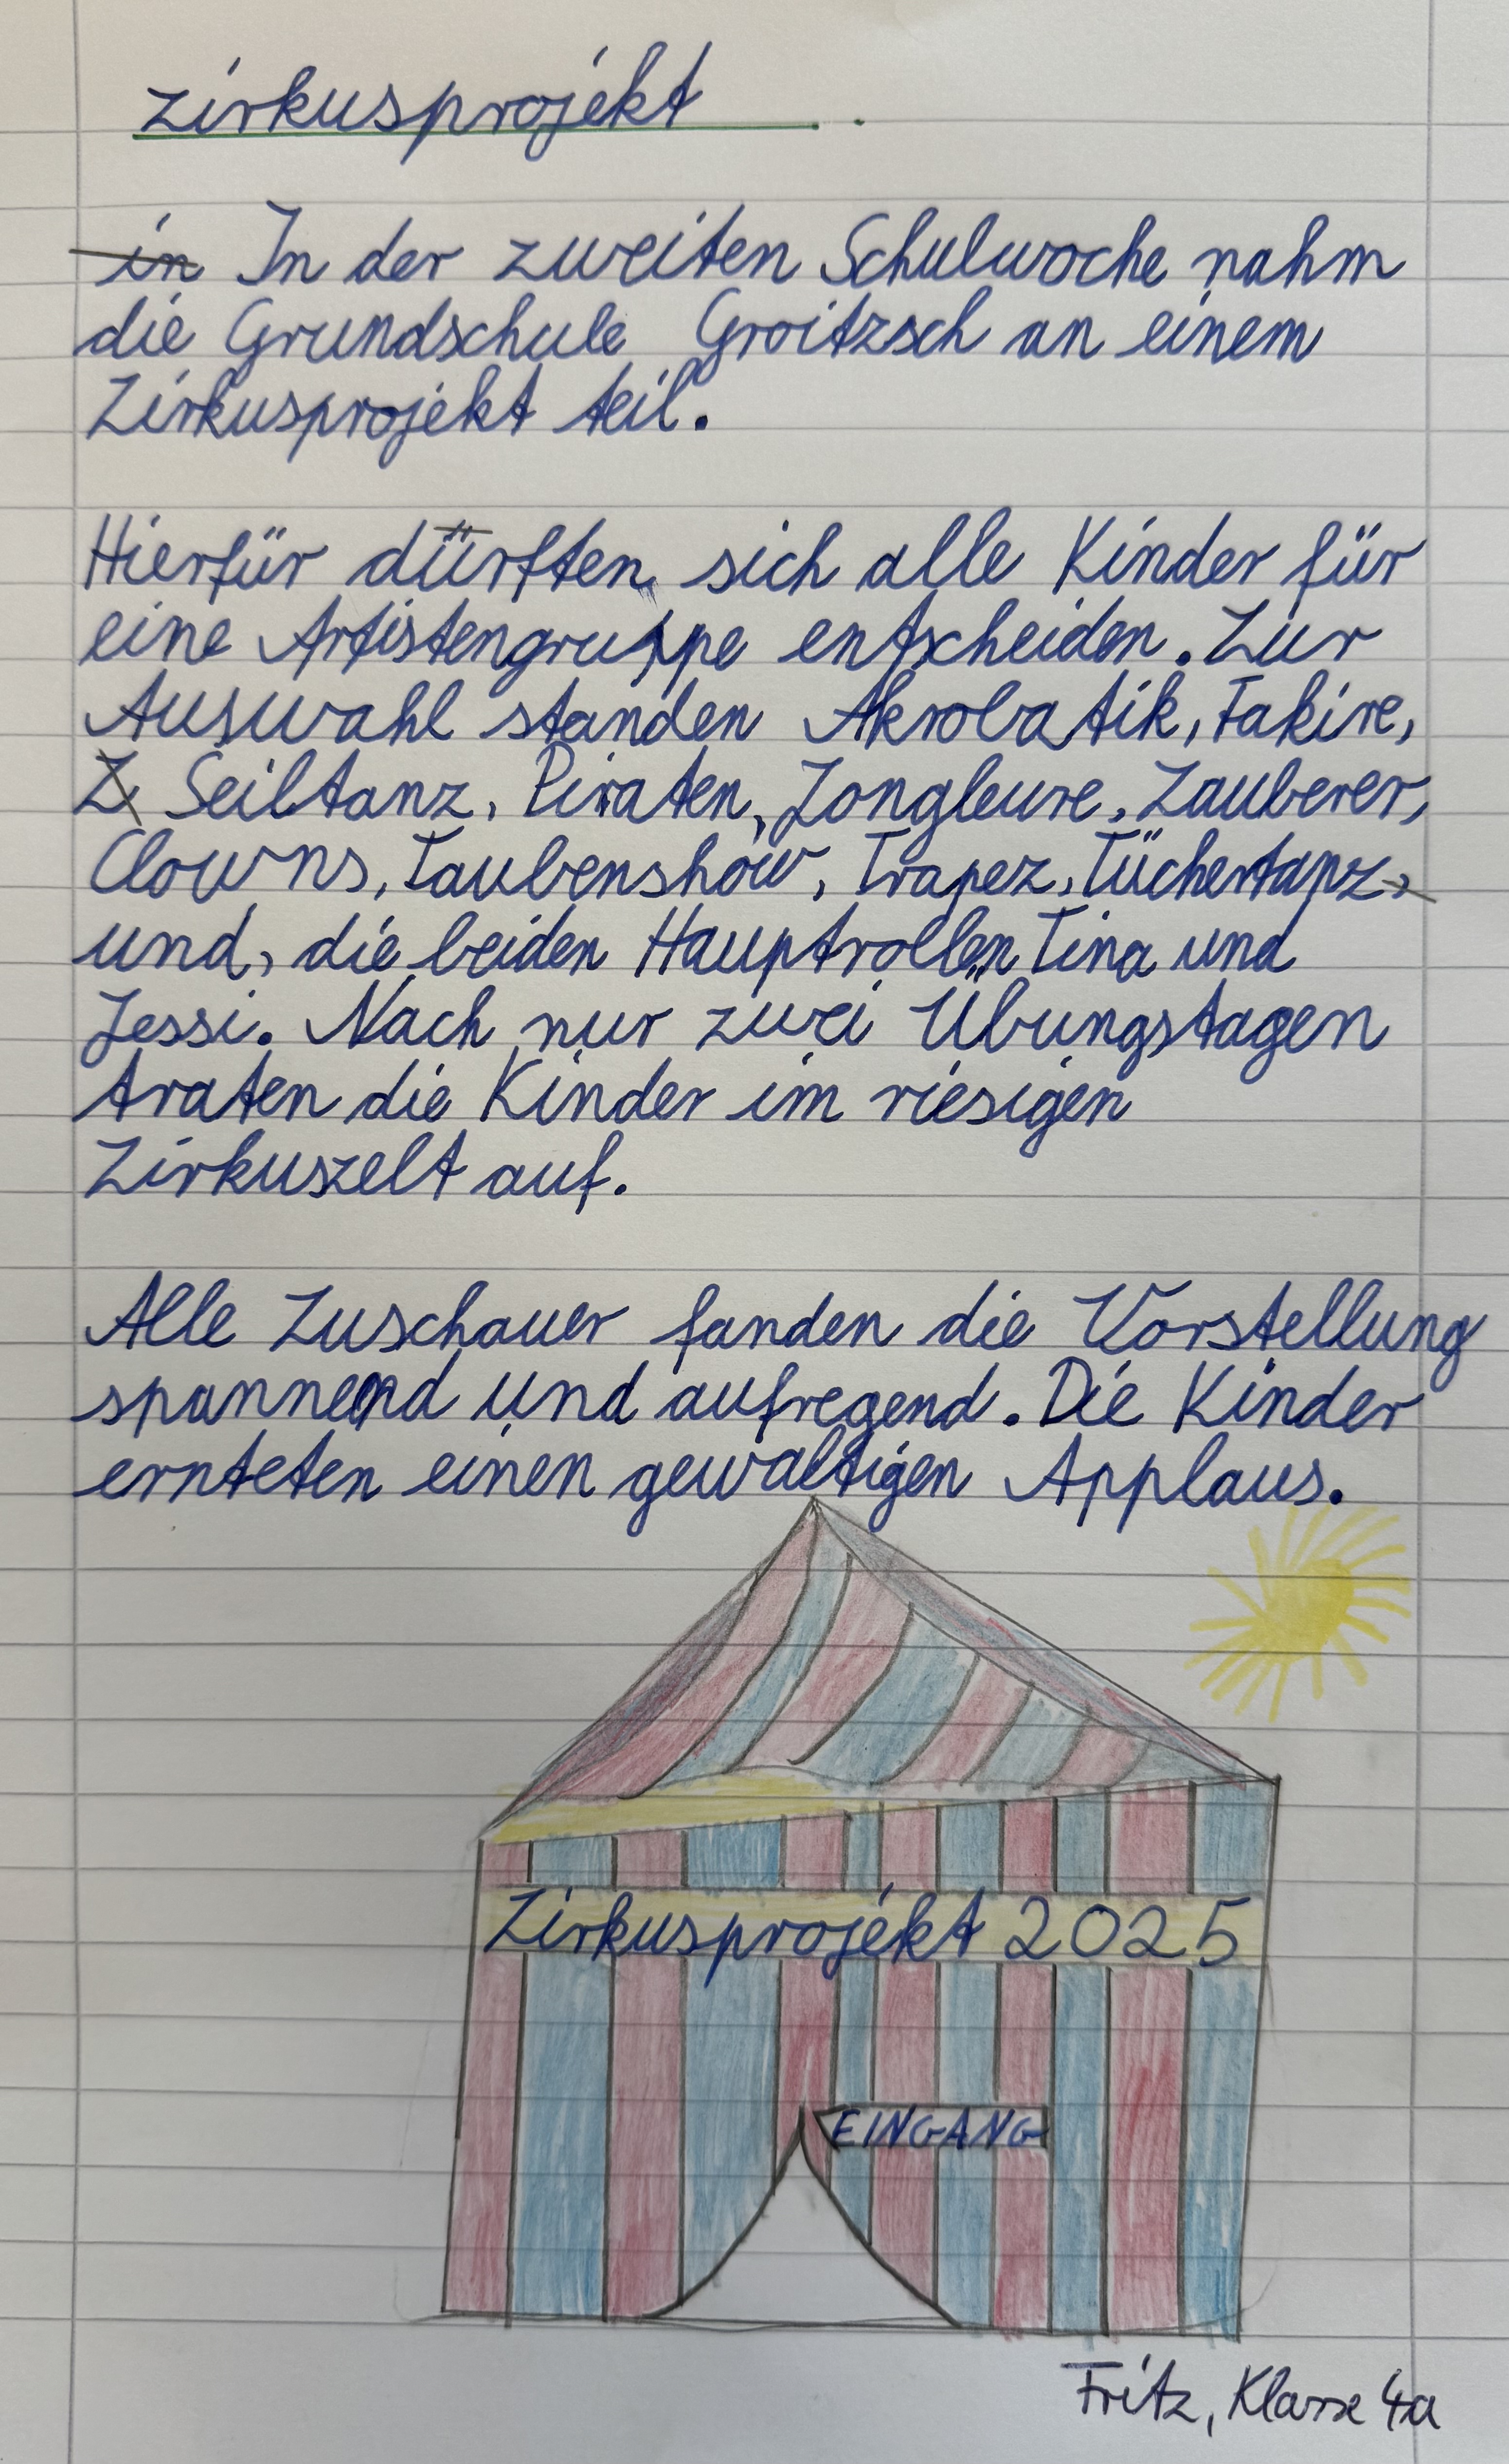 Zirkusprojekt
in In der zweiten Schulwoche nahm
die Grundschule Groitzsch an einem
Zirkusprojekt teil.
Hierfür durften sich alle Kinder für
eine Artistengruppe entscheiden. Zur
Auswahl standen Akrobatik, Fakire,
Z Seiltanz, Piraten, Jongleure, Zauberer,
Clowns, Taubenshow, Trapez, Tüchertanz,
und, die beiden Hauptrollen Tina und
Jessi. Nach nur zwei Übungstagen
traten die Kinder im riesigen
Zirkuszelt auf.
Alle Zuschauer fanden die Vorstellung
spannend und aufregend. Die Kinder
ernteten einen gewaltigen Applaus.
Zirkusprojekt 2025
EINGANG
Fritz, Klasse 4a